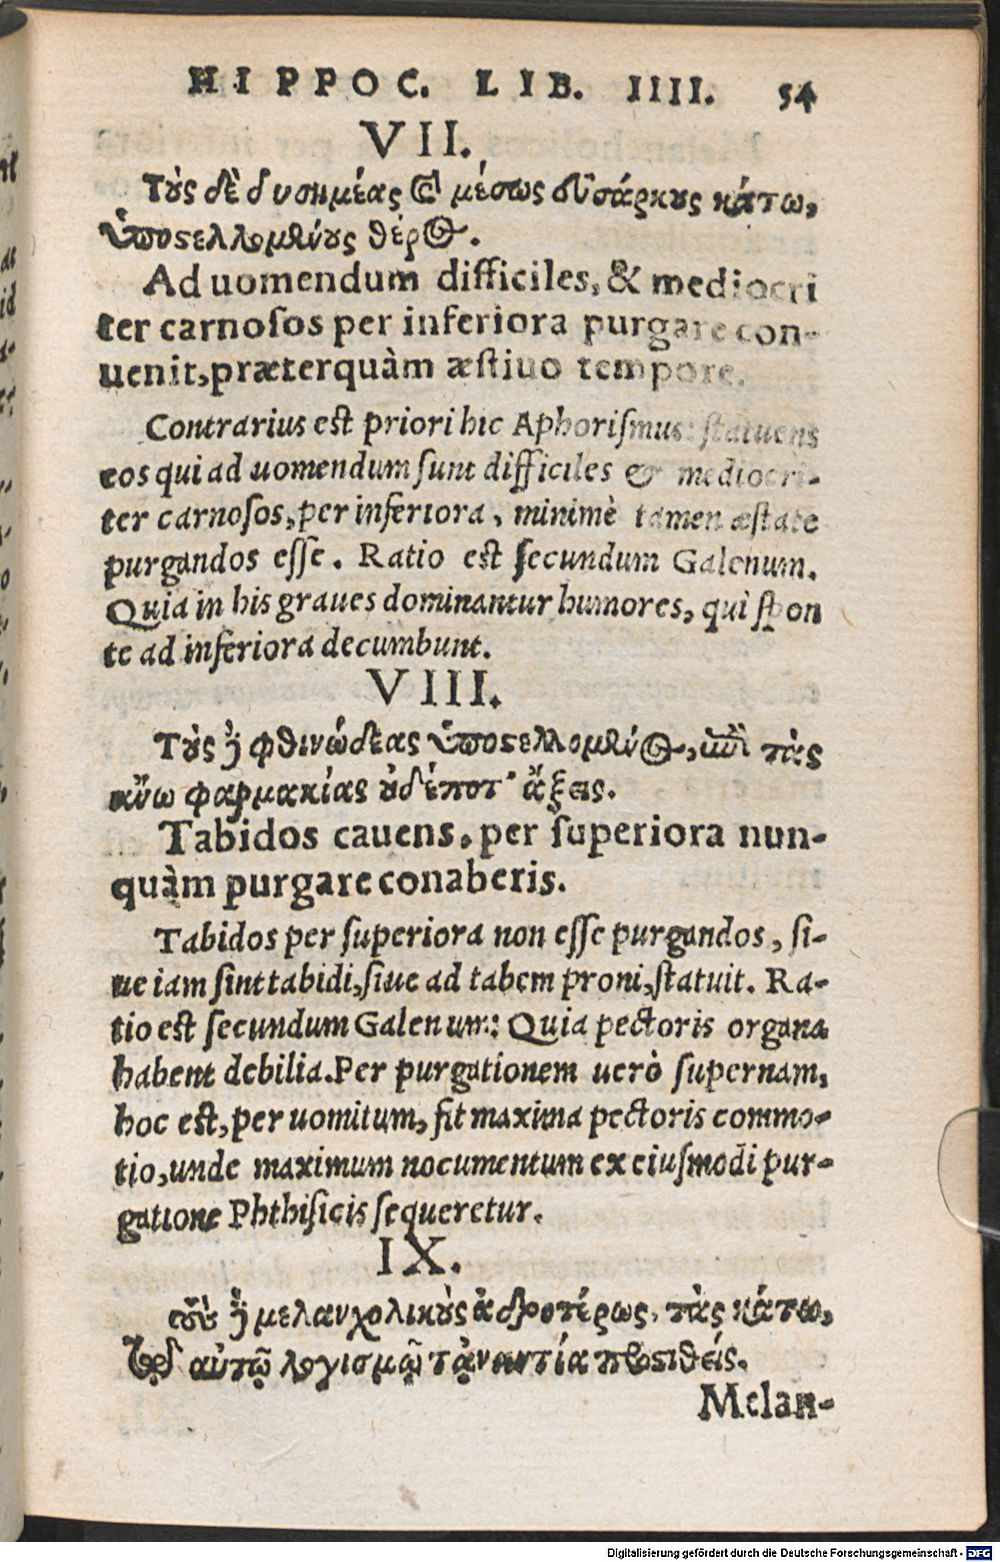 HIPPOC. LIB. IIII. 54
VII.
Τοὺς δὲ δυσημέας καὶ μέσως εὐσάρκους κάτω,
ὑποστελλομένους θέρος.
Ad uomendum difficiles, & mediocri
ter carnoſos per inferiora purgare con-
uenit, præterquàm æſtiuo tempore.
Contrarius eſt priori hic Aphoriſmus: ſtatuens
eos qui ad uomendum ſunt difficiles & mediocri-
ter carnoſos, per inferiora, minimè tamen æſtate
purgandos eſſe. Ratio eſt ſecundum Galenum.
Quia in his graues dominantur humores, qui ſpon
te ad inferiora decumbunt.
VIII.
Τοὺς δὲ φθινώδεας ὑποστελλομένος, ἐπὶ τὰς
ἄνω φαρμακίας οὐδέποτ' ἄξεις.
Tabidos cauens, per ſuperiora nun-
quàm purgare conaberis.
Tabidos per ſuperiora non eſſe purgandos, ſi-
ue iam ſint tabidi, ſiue ad tabem proni, ſtatuit. Ra-
tio eſt ſecundum Galenum: Quia pectoris organa
habent debilia. Per purgationem uerò ſupernam,
hoc eſt, per uomitum, fit maxima pectoris commo-
tio, unde maximum nocumentum ex eiuſmodi pur-
gatione Phthiſicis ſequeretur.
IX.
τοὺς δὲ μελανχολικοὺς ἁδροτέρως, τὰς κάτω,
τῷδ' αὐτῷ λογισμῷ τἀναντία προστιθείς.
Melan-
Digitalisierung gefördert durch die Deutsche Forschungsgemeinschaft - DFG